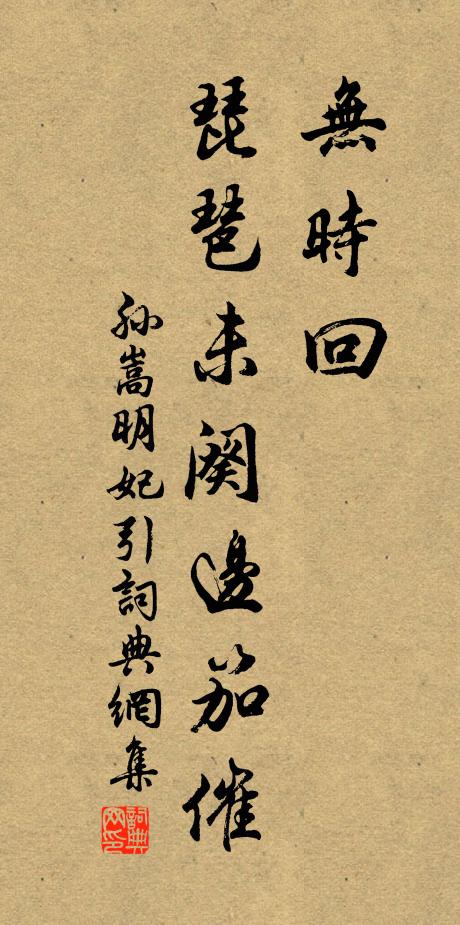 無時回
琵琶未闋邊笳催
孫嵩明妃引詞典網集